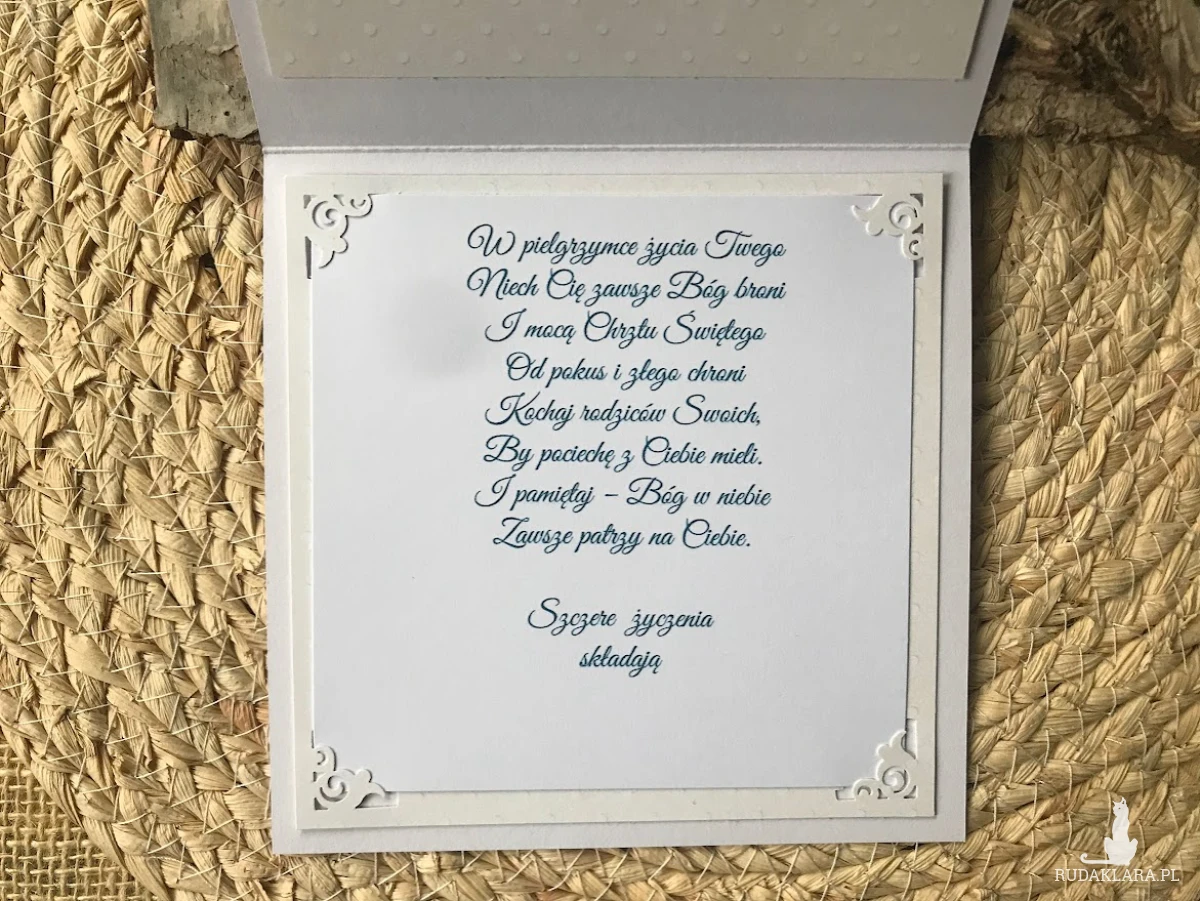 W pielgrzymce życia Twego
Niech Cię zawsze Bóg broni
I mocą Chrztu Świętego
Od pokus i złego chroni
Kochaj rodziców Swoich,
By pociechę z Ciebie mieli.
I pamiętaj – Bóg w niebie
Zawsze patrzy na Ciebie.
Szczere życzenia
składają
RUDAKLARA.PL